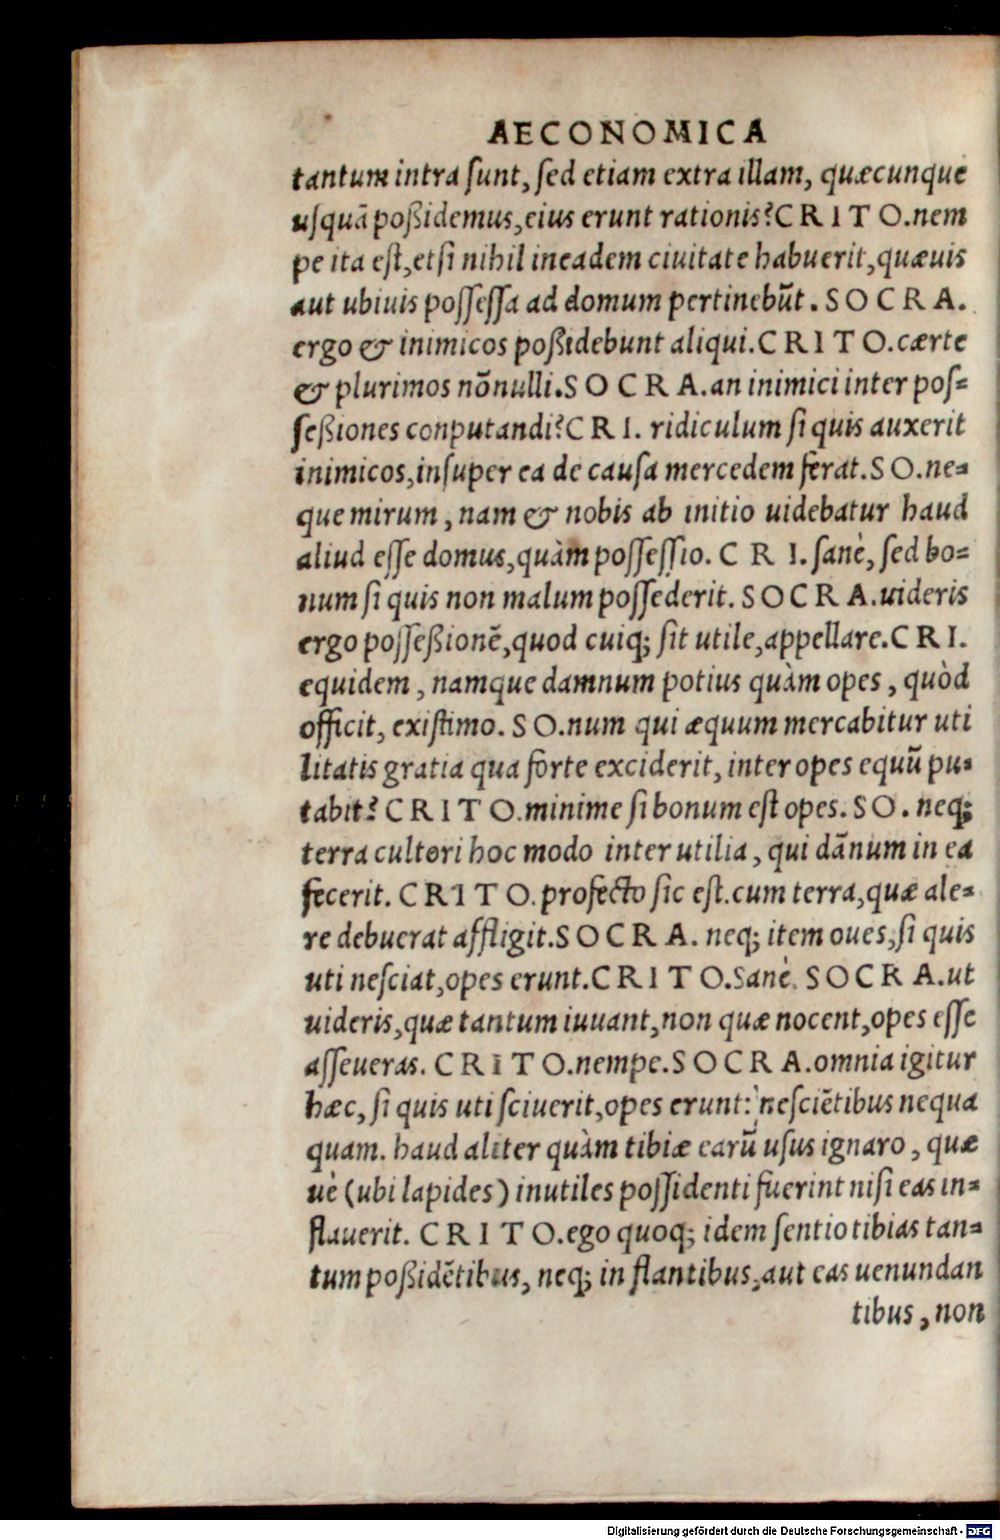 AECONOMICA
tantum intra ſunt, ſed etiam extra illam, quæcunque
uſquā poßidemus, eius erunt rationis? CRITO. nem
pe ita eſt, etſi nihil in eadem ciuitate habuerit, quæuis
aut ubiuis poſſeſſa ad domum pertinebūt. SOCRA.
ergo & inimicos poßidebunt aliqui. CRITO. cærte
& plurimos nōnulli. SOCRA. an inimici inter poſ=
ſeßiones conputandi? CRI. ridiculum ſi quis auxerit
inimicos, inſuper ea de cauſa mercedem ferat. SO. ne=
que mirum, nam & nobis ab initio uidebatur haud
aliud eſſe domus, quàm poſſeſſio. CRI. ſanè, ſed bo=
num ſi quis non malum poſſederit. SOCRA. uideris
ergo poſſeßionē, quod cuiq; ſit utile, appellare. CRI.
equidem, namque damnum potius quàm opes, quòd
officit, exiſtimo. SO. num qui æquum mercabitur uti
litatis gratia qua forte exciderit, inter opes equū pu=
tabit? CRITO. minime ſi bonum eſt opes. SO. neq;
terra cultori hoc modo inter utilia, qui dānum in ea
fecerit. CRITO. profecto ſic eſt. cum terra, quæ ale=
re debuerat affligit. SOCRA. neq; item oues, ſi quis
uti neſciat, opes erunt. CRITO. Sanè. SOCRA. ut
uideris, quæ tantum iuuant, non quæ nocent, opes eſſe
aſſeueras. CRITO. nempe. SOCRA. omnia igitur
hæc, ſi quis uti ſciuerit, opes erunt: neſciētibus nequa
quam. haud aliter quàm tibiæ earū uſus ignaro, quæ
uè (ubi lapides) inutiles poſſidenti fuerint niſi eas in=
flauerit. CRITO. ego quoq; idem ſentio tibias tan=
tum poßidētibus, neq; in flantibus, aut eas uenundan
tibus, non
Digitalisierung gefördert durch die Deutsche Forschungsgemeinschaft - DFG